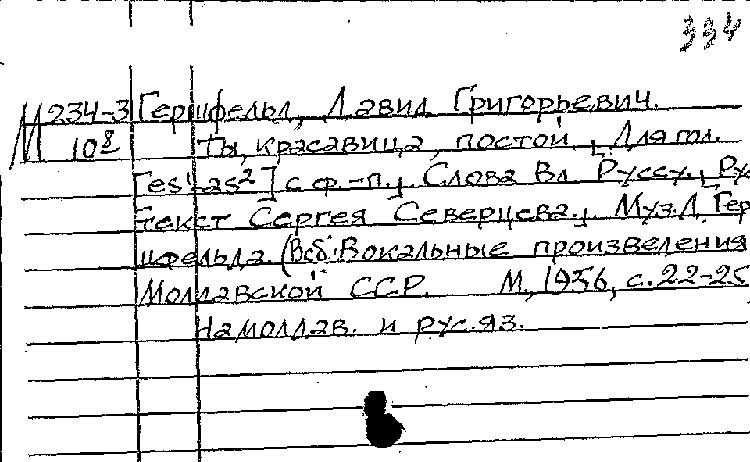 334
М 234-3 Гершфельд, Давид Григорьевич.
108 Ты, красавица, постой., Для гол.
[es¹-as²] с ф.-п., Слова Вл. Руссу., Ру
текст Сергея Северцева., Муз. Д. Гер
шфельда. (В сб.: Вокальные произведения
Молдавской ССР. М., 1956, с. 22-25
На молдав. и рус. яз.